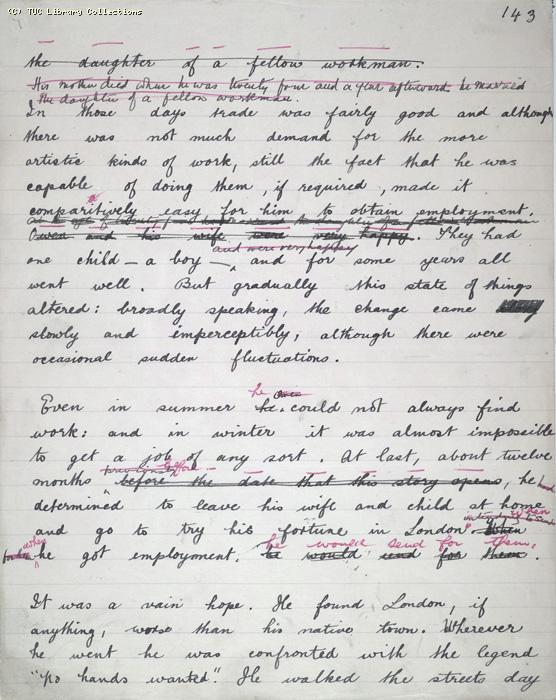 (C) TUC Library Collections
143
the daughter of a fellow workman.
His mother died when he was twenty four and a year afterward he married
the daughter of a fellow workman.
In those days trade was fairly good and although
there was not much demand for the more
artistic kinds of work, still the fact that he was
capable of doing them, if required, made it
comparitively easy for him to obtain employment.
a
Owen and his wife were very happy. They had
and were very happy
one child — a boy — and for some years all
went well. But gradually this state of things
altered: broadly speaking, the change came
slowly and imperceptibly, although there were
occasional sudden fluctuations.
he Owen
Even in summer he could not always find
work: and in winter it was almost impossible
to get a job of any sort. At last, about twelve
previously before
months before the date that this story opens, he had
determined to leave his wife and child at home
and go to try his fortune in London. When
intending to send When
when he got employment. he would send for them.
he would send for them.
It was a vain hope. He found London, if
anything, worse than his native town. Wherever
he went he was confronted with the legend
"No hands wanted". He walked the streets day